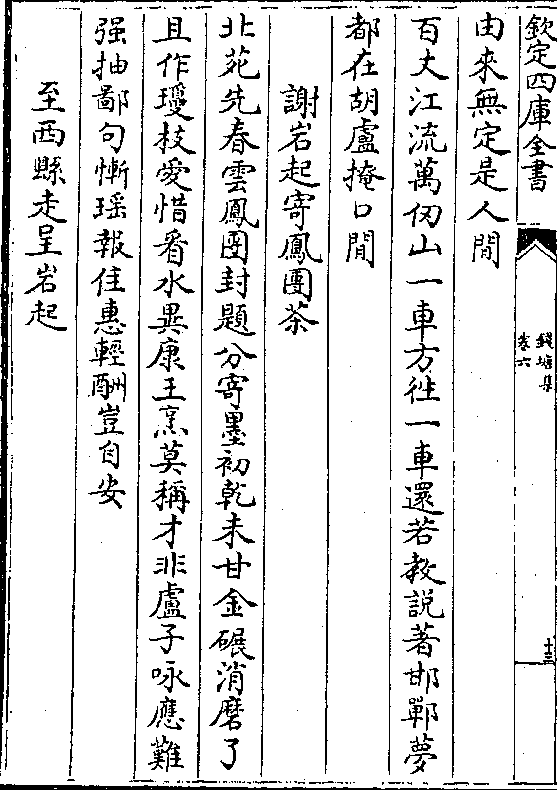 欽定四庫全書
錢塘集
卷六
十三
由來無定是人間
百丈江流萬仞山一車方徃一車還若教說著邯鄲夢
都在胡盧掩口間
謝岩起寄鳳團茶
北苑先春雲鳳團封題分寄墨初乾未甘金碾消磨了
且作瓊枝愛惜看水異康王烹莫稱才非盧子咏應難
强抽鄙句慚瑶報佳惠輕酬豈自安
至西縣走呈岩起